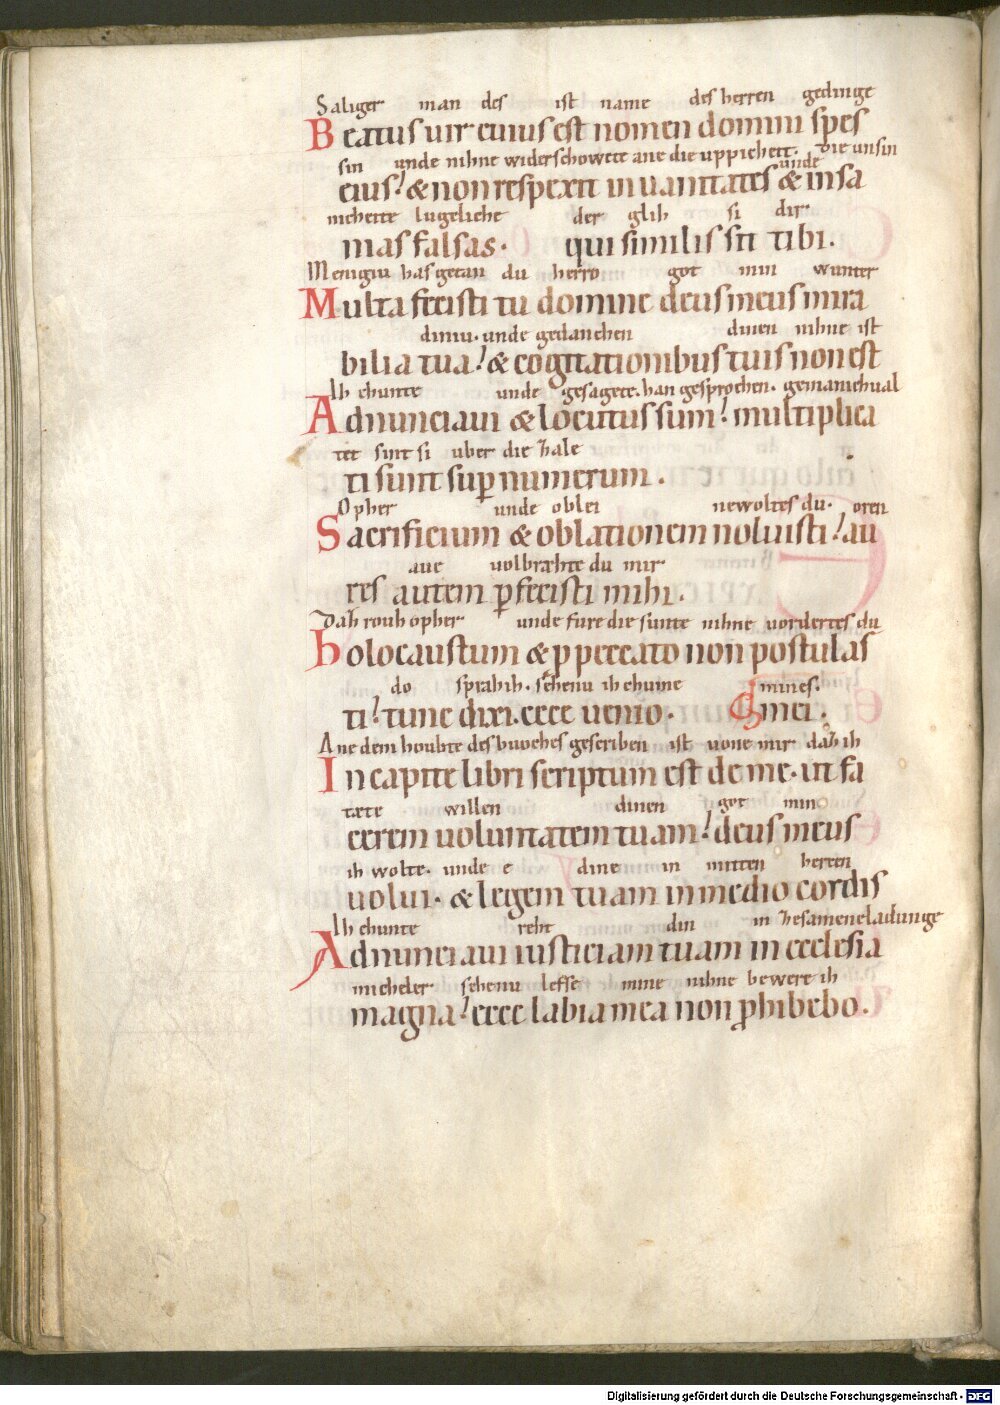 Saliger man des ist name des herren gedinge
Beatus uir cuius est nomen domini spes
sin unde nihne widerschowete ane die uppicheit. unde die unsin
eius! & non respexit in uanitates & insa
nicheite lugeliche der glih si dir
nias falsas. qui similis sit tibi.
Menigiu has getan du herro got min wunter
Multa fecisti tu domine deus meus mira
diniu. unde gedanchen dinen nihne ist
bilia tua! & cogitationibus tuis non est
Ih chunte unde gesagete. han gesprochen. gemanichual
Adnunciaui & locutus sum! multiplica
tet sint si uber die zale
ti sunt sup numerum.
Opher unde oblei newoltes du. oren
Sacrificium & oblationem noluisti! au
aue uolbrahte du mir
res autem pfecisti mihi.
Daz rouh opher unde fure die sunte nihne uordertes du
holocaustum & p peccato non postulas
do sprah ih. sehenu ih chume mines.
ti! tunc dixi. ecce uenio. mei.
Ane dem houbte des buoches gescriben ist uone mir daz ih
In capite libri scriptum est de me. ut fa
tæte willen dinen got min
cerem uoluntatem tuam! deus meus
ih wolte. unde e dine in mitten herzen
uolui. & legem tuam in medio cordis
Ih chunte reht din in zesameneladunge
Adnunciaui iusticiam tuam in ecclesia
micheler sehenu leffse mine nihne bewere ih
magna! ecce labia mea non phibebo.
Digitalisierung gefördert durch die Deutsche Forschungsgemeinschaft - DFG